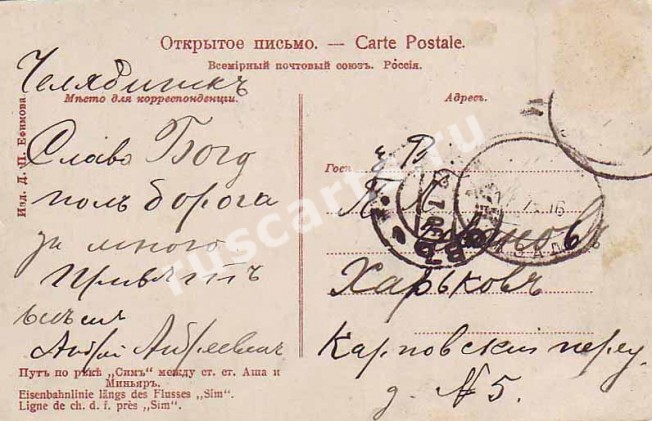 Открытое письмо. — Carte Postale.
Всемірный почтовый союзъ. Россія.
Челябинскъ
Мѣсто для корреспонденціи.
Адресъ.
Изд. Д. П. Ефимова
Слава Богу
полъ дорога
за много
Привѣтъ
Андрей Андреевич
Госп.
Харьковъ
Карповскій переу
д. № 5.
Путь по рѣкѣ „Симъ" между ст. ст. Аша и
Миньяръ.
Eisenbahnlinie längs des Flusses „Sim".
Ligne de ch. d. f. près „Sim".
ruscards.ru